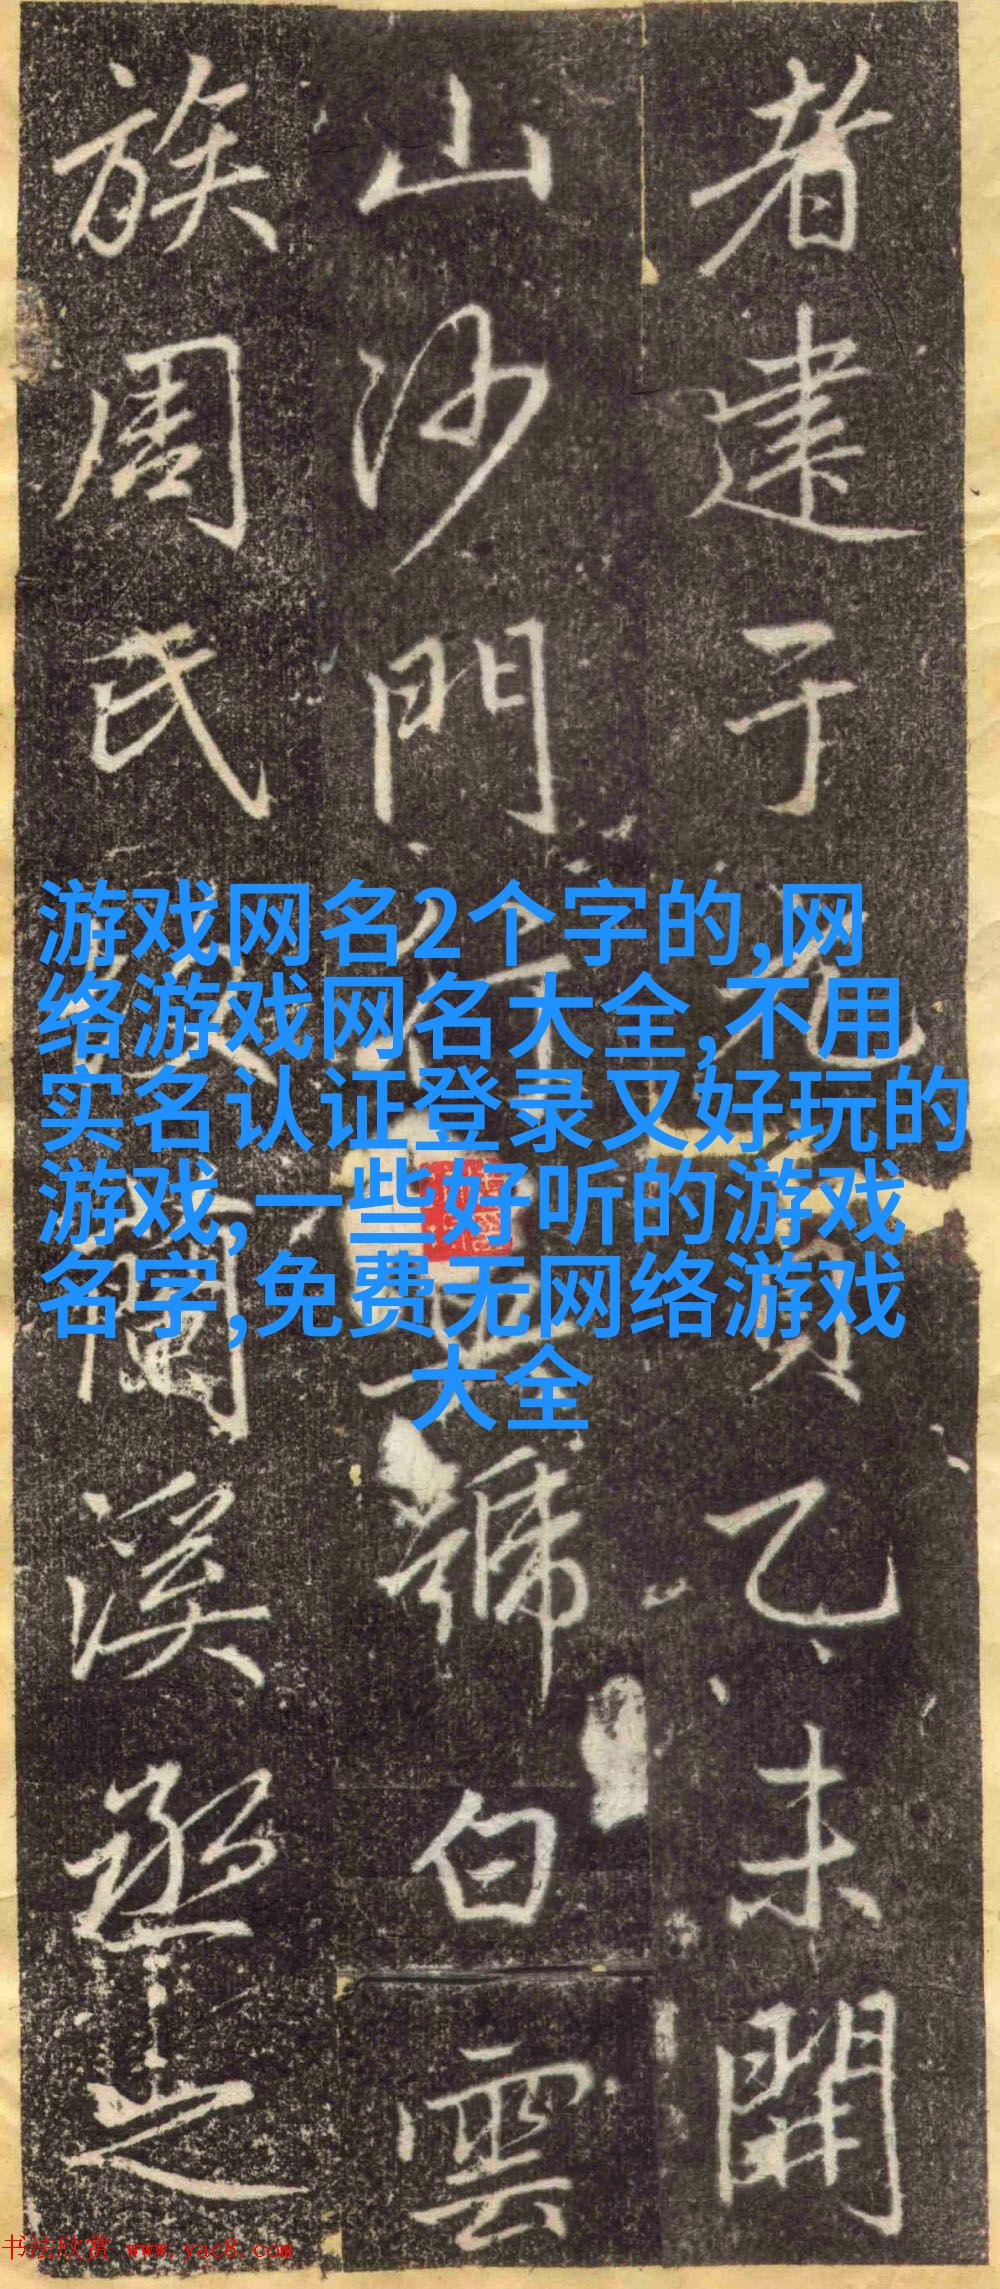 者建于元貞乙未開
山沙門行號白雲
族周氏蘭溪丞之
游戏网名2个字的,网
络游戏网名大全,不用
实名认证登录又好玩的
游戏,一些好听的游戏
名字,免费无网络游戏
大全
书法欣赏 www.yac8.com